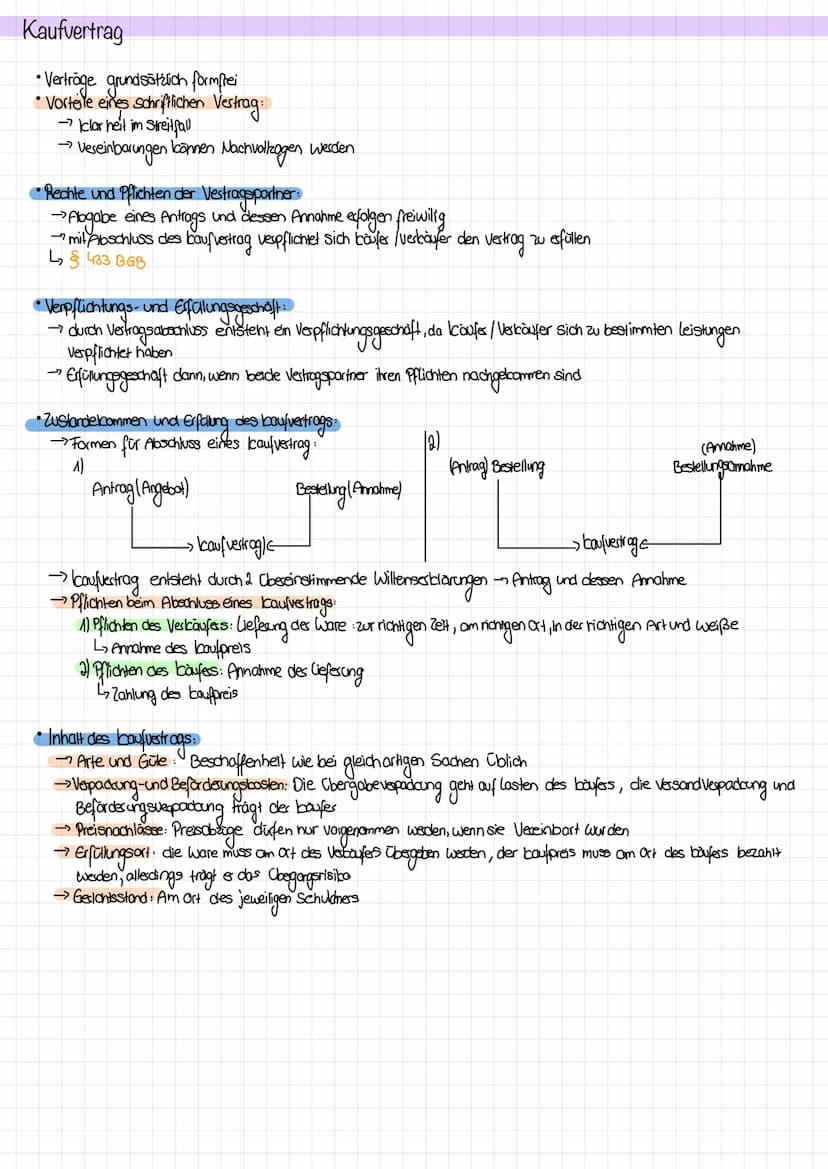 Kaufvertrag
• Verträge grundsätzlich formfrei
• Vorteile eines schriftlichen Vertrag:
→ Klarheit im Streitfall
→ Vereinbarungen können Nachvollzogen werden
• Rechte und Pflichten der Vertragspartner:
→ Abgabe eines Antrags und dessen Annahme erfolgen freiwillig
→ mit Abschluss des Kaufvertrag verpflichtet sich Käufer / Verkäufer den Vertrag zu erfüllen
↳ § 433 BGB
• Verpflichtungs- und Erfüllungsgeschäft:
→ durch Vertragsabschluss entsteht ein Verpflichtungsgeschäft, da Käufer / Verkäufer sich zu bestimmten Leistungen
verpflichtet haben
→ Erfüllungsgeschäft dann, wenn beide Vertragspartner ihren Pflichten nachgekommen sind
• Zustandekommen und Erfüllung des Kaufvertrags:
→ Formen für Abschluss eines Kaufvertrag:
1)
Antrag (Angebot) Bestellung (Annahme)
→ Kaufvertrag ←
2)
(Antrag) Bestellung
(Annahme)
Bestellungsannahme
→ Kaufvertrag ←
→ Kaufvertrag entsteht durch 2 Übereinstimmende Willenserklärungen → Antrag und dessen Annahme
→ Pflichten beim Abschluss eines Kaufvertrags:
1) Pflichten des Verkäufers: Lieferung der Ware : zur richtigen Zeit, am richtigen Ort, in der richtigen Art und Weiße
↳ Annahme des Kaufpreis
2) Pflichten des Käufers: Annahme des Lieferung
↳ Zahlung des Kaufpreis
• Inhalt des Kaufvertrags:
→ Arte und Güte: Beschaffenheit wie bei gleichartigen Sachen Üblich
→ Verpackung- und Beförderungskosten: Die Übergabeverpackung geht auf Lasten des Käufers, die Versandverpackung und
Beförderungsverpackung trägt der Käufer
→ Preisnachlässe: Preisabzüge dürfen nur vorgenommen werden, wenn sie Vereinbart wurden
→ Erfüllungsort: die Ware muss am Ort des Verkäufers Übergeben werden, der Kaufpreis muss am Ort des Käufers bezahlt
werden, allerdings trägt er das Übergangsrisiko
→ Gerichtsstand: Am Ort des jeweiligen Schuldners